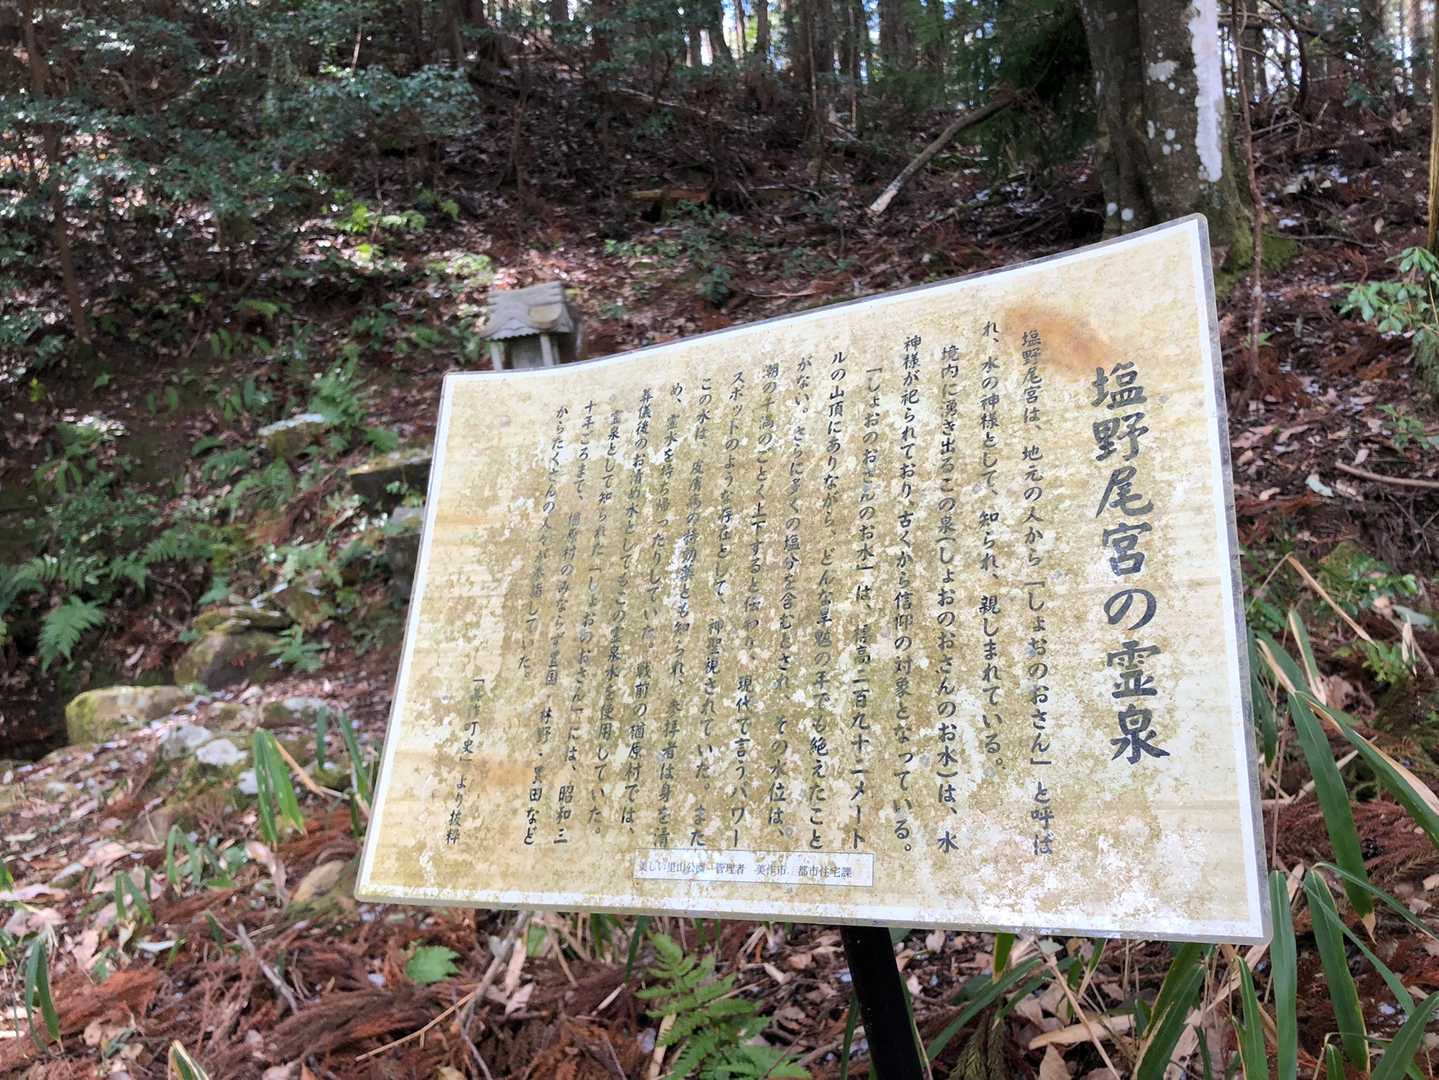 塩野尾宮の霊泉
塩野尾宮は、地元の人から「しょおのおさん」と呼ば
れ、水の神様として、知られ、親しまれている。
境内に湧き出るこの泉(しょおのおさんのお水)は、水
神様が祀られており、古くから信仰の対象となっている。
「しょおのおさんのお水」は、標高二百九十二メート
ルの山頂にありながら、どんな旱魃の年でも絶えたこと
がない。さらに多くの塩分を含むとされ、その水位は、
潮の干満のごとく上下すると伝わり、現代で言うパワー
スポットのような存在として、神聖視されていた。また
この水は、皮膚病の特効薬とも知られ、参拝者は身を清
め、霊水を持ち帰ったりしていた。戦前の楢原村では、
葬儀後のお清め水としてもこの霊泉水を使用していた。
霊泉として知られた「しょおのおさん」には、昭和三
十年ごろまで、楢原村のみならず 林野・黒田など
からたくさんの人々が参詣していた。
町史」より抜粋
美しい里山公園 管理者 美作市 都市住宅課